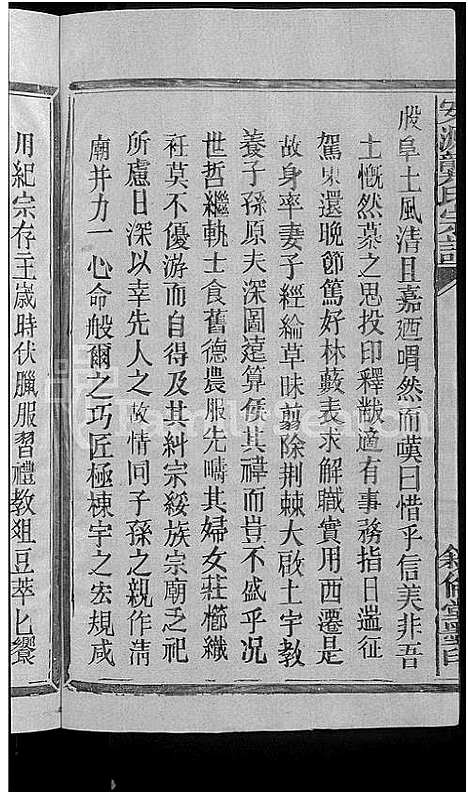 殷阜土風清且嘉迺喟然而嘆曰惜乎信美非吾
土慨然慕之思投印釋黻適有事務指日遄征
駕東還晚節篤好林藪表求解職實用西遷是
故身率妻子經綸草昧翦除荆棘大啟土宇教
養子孫原夫深圖遠算俟其禕而豈不盛乎况
世哲繼軌士食舊德農服先疇其婦女莊櫛織
衽莫不優游而自得及其糾宗綏族宗廟乏祀
所慮日深以幸先人之故情同子孫之親作淸
廟并力一心命般爾之巧匠極棟宇之宏規咸
用紀宗存主嵗時伏臘服習禮教俎豆萃匕饗
氏宗譜